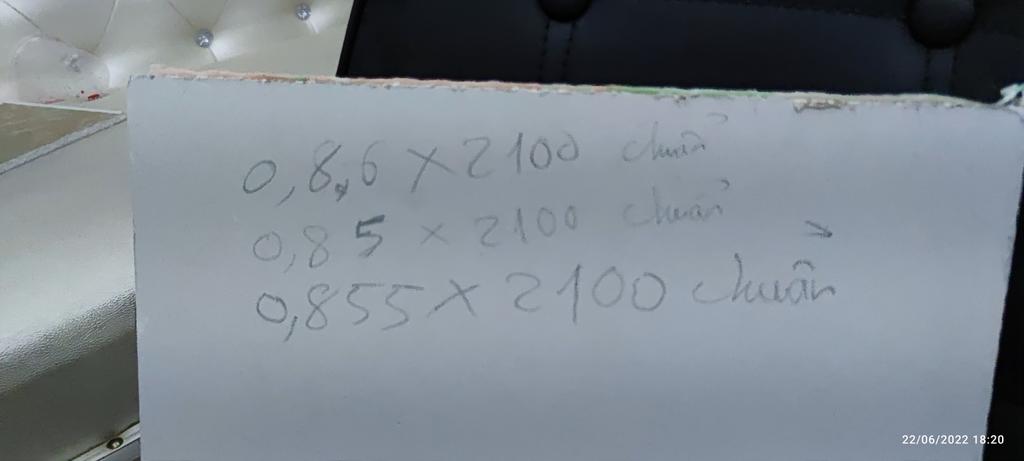 0,8,6 x 2100 chuẩn
0,85 x 2100 chuẩn
0,855 x 2100 chuẩn
22/06/2022 18:20